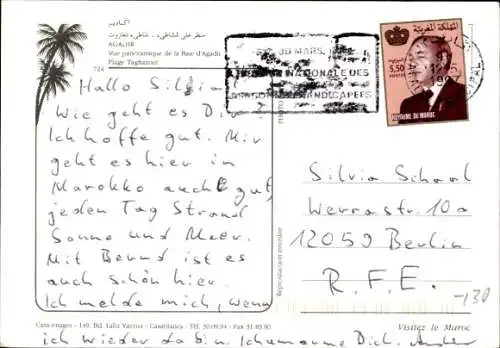 أكادير
AGADIR
Vue panoramique de la Baie d'Agadir
Plage Taghazout
Hallo Silvia
Wie geht es Dir?
Ich hoffe gut. Mir
geht es hier in
Marokko auch gut,
jeden Tag Strand
Sonne und Meer.
Mit Bernd ist es
auch schön hier.
Ich melde mich, wenn
ich wieder da bin. Ich umarme Dich.
30 MARS
NATIONALE DES
HANDICAPEES
المملكة المغربية
5,50
POSTES
ROYAUME DU MAROC
Silvia Schaal
Werrastr. 10a
12059 Berlin
R.F.E.
-130
Reproduction interdite
Casa-images - 149, Bd. Lalla Yacout - Casablanca - Tél. 30.09.94 - Fax 31.89.80
Visitez le Maroc